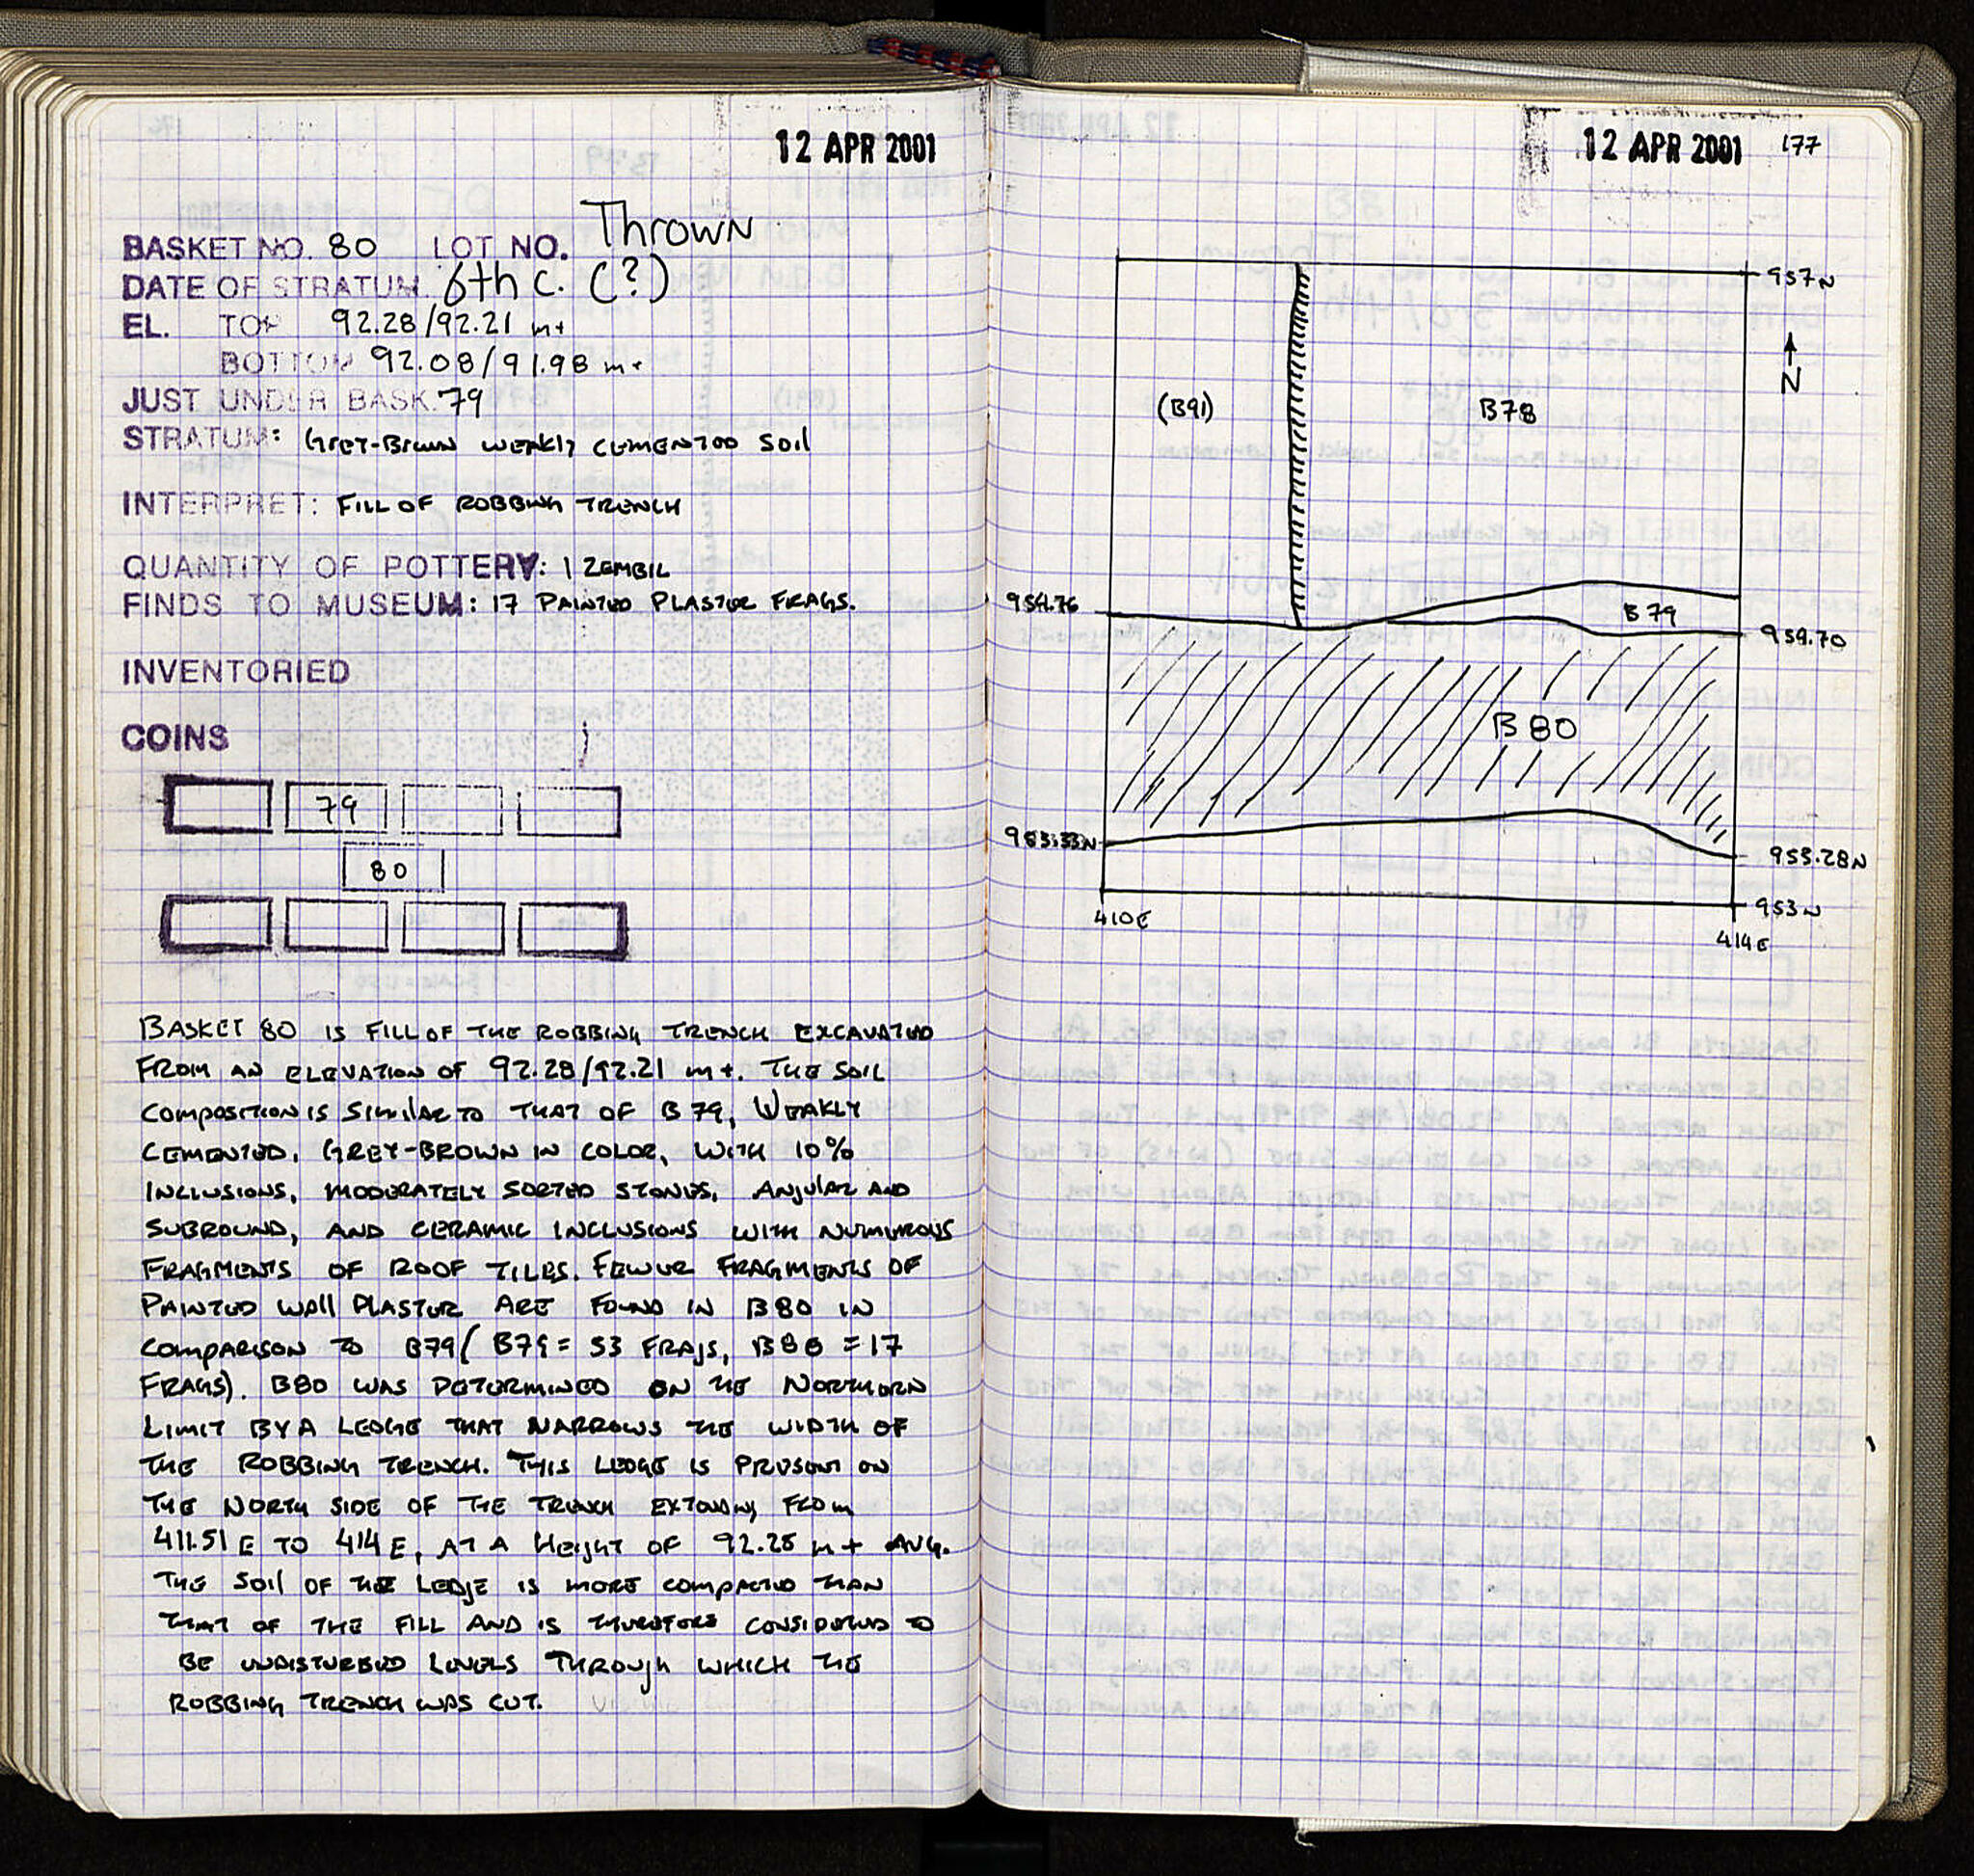 12 APR 2001
BASKET NO. 80 LOT NO. Thrown
DATE OF STRATUM 6th c. (?)
EL. TOP 92.28/92.21 m+
BOTTOM 92.08/91.98 m+
JUST UNDER BASK. 79
STRATUM: GREY-BROWN WEAKLY CEMENTED SOIL
INTERPRET: FILL OF ROBBING TRENCH
QUANTITY OF POTTERY: 1 ZEMBIL
FINDS TO MUSEUM: 17 PAINTED PLASTER FRAGS.
INVENTORIED
COINS
79
80
BASKET 80 IS FILL OF THE ROBBING TRENCH EXCAVATED
FROM AN ELEVATION OF 92.28/92.21 m+. THE SOIL
COMPOSITION IS SIMILAR TO THAT OF B79, WEAKLY
CEMENTED, GREY-BROWN IN COLOR, WITH 10%
INCLUSIONS, MODERATELY SORTED STONES, ANGULAR AND
SUBROUND, AND CERAMIC INCLUSIONS WITH NUMEROUS
FRAGMENTS OF ROOF TILES. FEWER FRAGMENTS OF
PAINTED WALL PLASTER ARE FOUND IN B80 IN
COMPARISON TO B79 (B79 = 53 FRAGS, B80 = 17
FRAGS). B80 WAS DETERMINED ON THE NORTHERN
LIMIT BY A LEDGE THAT NARROWS THE WIDTH OF
THE ROBBING TRENCH. THIS LEDGE IS PRESENT ON
THE NORTH SIDE OF THE TRENCH EXTENDING FROM
411.51 E TO 414 E, AT A HEIGHT OF 92.28 m+ AVG.
THE SOIL OF THE LEDGE IS MORE COMPACTED THAN
THAT OF THE FILL AND IS THEREFORE CONSIDERED TO
BE UNDISTURBED LEVELS THROUGH WHICH THE
ROBBING TRENCH WAS CUT.
12 APR 2001 177
957N
N
(B91) B78
954.76
B79
954.70
B80
953.33N
953.28N
953N
410E
414E